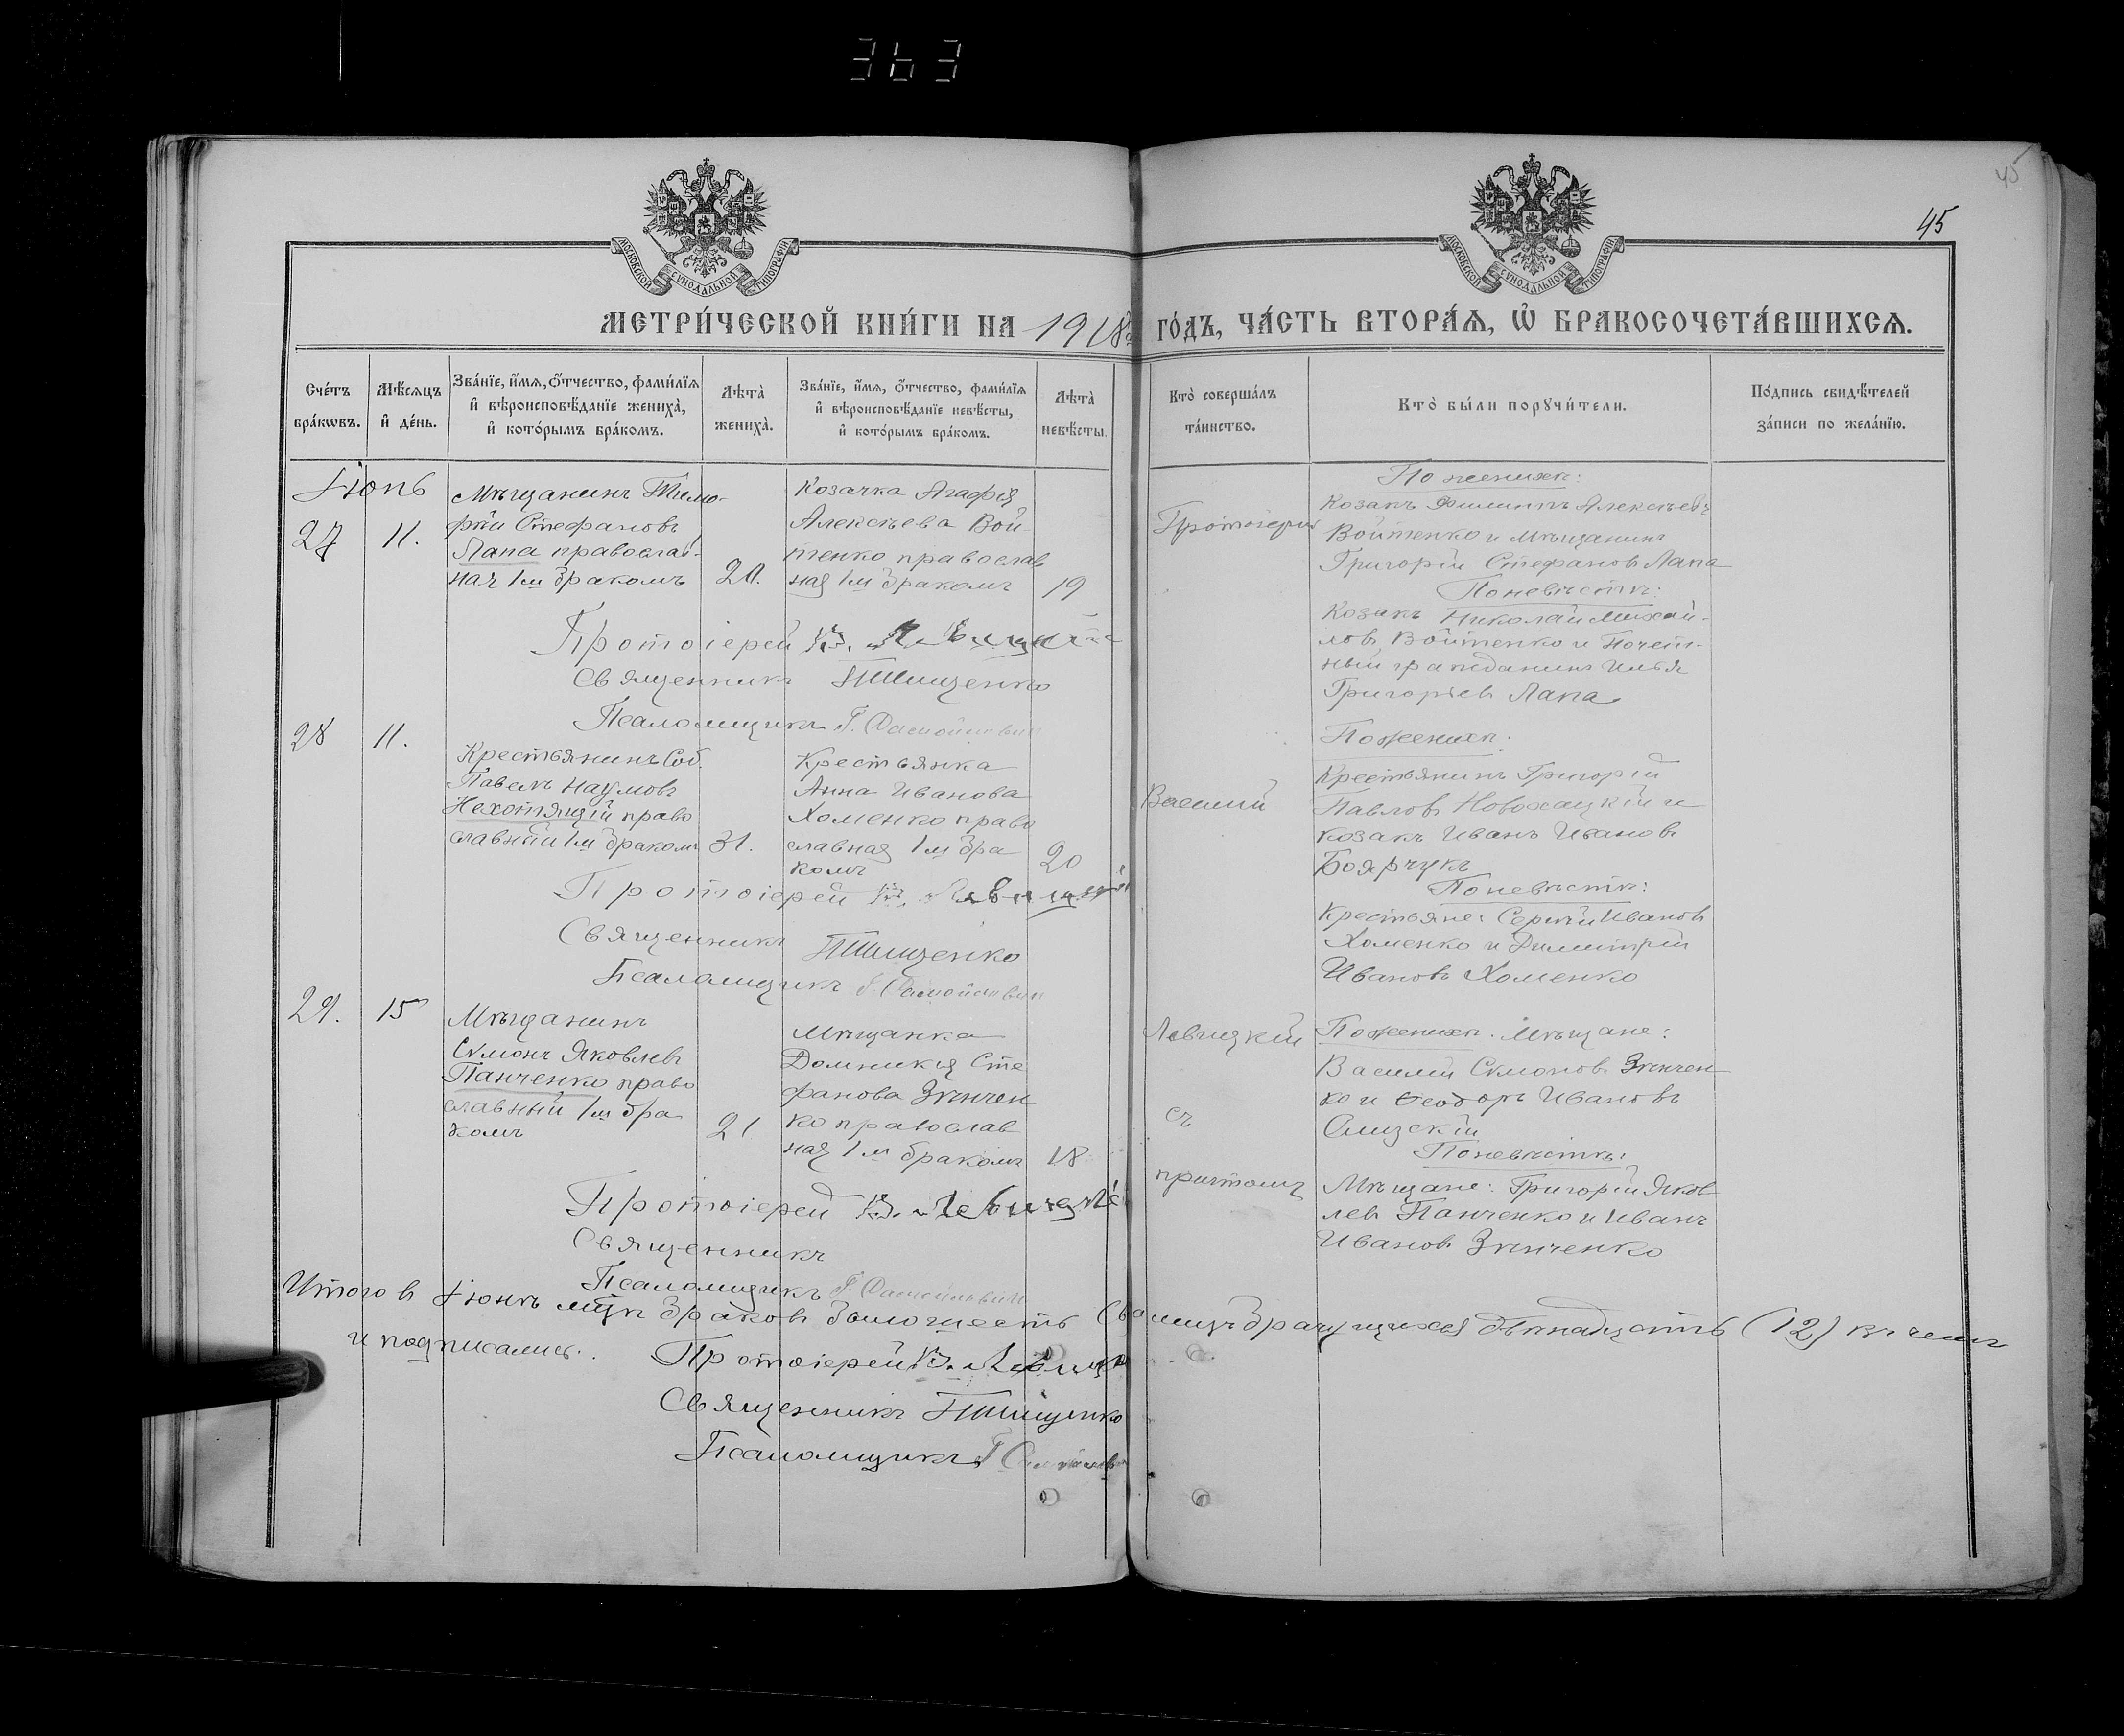 363
45
45
МОСКОВСКОЙ СУНОДАЛЬНОЙ ТИПОГРАФІИ
МОСКОВСКОЙ СУНОДАЛЬНОЙ ТИПОГРАФІИ
МЕТРИ́ЧЕСКОЙ КНИ́ГИ НА 1918 го́дъ, ча́сть втора́ѧ, ѡ҆ бракосочета́вшихсѧ.
Сче́тъ бра́кѡвъ.
Мѣ́сѧцъ и҆ де́нь.
Зва́нїе, и҆́мѧ, ѻ҆́тчество, фами́лїѧ
и҆ вѣроисповѣ́данїе жениха̀,
и҆ кото́рымъ бра́комъ.
Лѣ́та̀ жениха̀.
Зва́нїе, и҆́мѧ, ѻ҆́тчество, фами́лїѧ
и҆ вѣроисповѣ́данїе невѣ́сты,
и҆ кото́рымъ бра́комъ.
Лѣ́та̀ невѣ́сты.
Кто̀ соверша́лъ та́инство.
Кто̀ бы́ли порꙋчи́тели.
По́дпись свидѣ́телей
за́писи по жела́нїю.
Іюнь
27
11.
Мѣщанинъ Тимо-
фей Стефановъ
Лапа православ-
ный 1м бракомъ
20.
Козачка Агафія
Алексѣева Вой-
тенко православ
ная 1м бракомъ
19
Протоіерей
По женихѣ:
Козакъ Филиппъ Алексѣевъ
Войтенко и мѣщанинъ
Григорій Стефановъ Лапа
По невѣстѣ:
Козакъ Николай Михай-
ловъ Войтенко и Почет-
ный гражданинъ Илья
Григорьевъ Лапа
Протоіерей В. Левицкій
Священникъ Тищенко
Псаломщикъ Г. Самойлович
28
11.
Крестьянинъ Соб.
Павелъ Наумовъ
Нехотящій право
славный 1м бракомъ
31.
Крестьянка
Анна Иванова
Хоменко право
славная 1м бра
комъ
20
Василий
По женихѣ:
Крестьянинъ Григорій
Павловъ Новохацкій и
козакъ Иванъ Ивановъ
Боярчукъ
По невѣстѣ:
Крестьяне: Сергѣй Ивановъ
Хоменко и Димитрій
Ивановъ Хоменко
Протоіерей В. Левицкій
Священникъ Тищенко
Псаломщикъ Г. Самойлович
29.
15
Мѣщанинъ
Симонъ Яковлевъ
Панченко право
славный 1м бра
комъ
21
Мѣщанка
Домникія Сте
фанова Зѣнчен
ко православ
ная 1м бракомъ
18
Левицкій
съ
притомъ
По женихѣ. Мѣщане:
Василій Симоновъ Зѣнчен
ко и Ѳеодоръ Ивановъ
По невѣстѣ:
Мѣщане: Григорій Яков
левъ Панченко и Иванъ
Ивановъ Зѣнченко
Протоіерей В. Левицкій
Священникъ
Псаломщикъ Г. Самойлович
Итого въ Іюнѣ мцѣ браковъ было шесть брачущихся двѣнадцать (12) въ чемъ
и подписались:
Протоіерей В. Левицк
Священникъ Тищенко
Псаломщикъ Г Самойлов